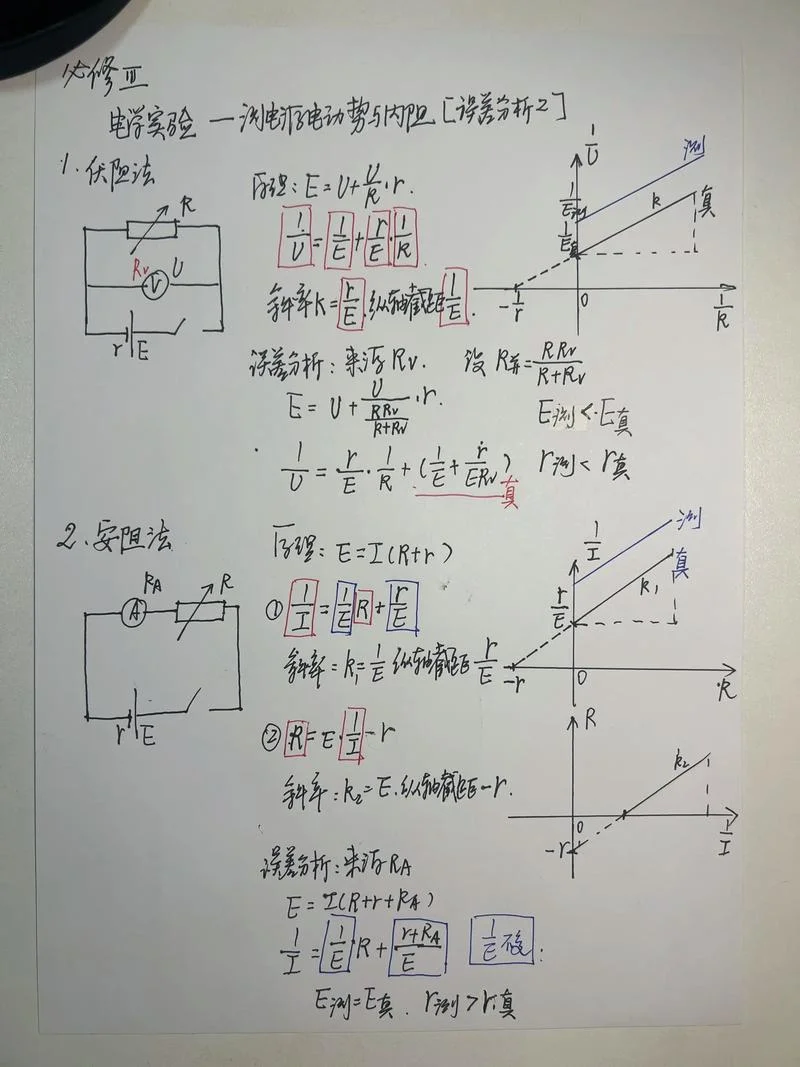 必修Ⅲ
电学实验 — 测电源电动势与内阻 [误差分析2]
1. 伏阻法
R
Rv V U
r E
原理: E = U + U/R · r.
1/U = 1/E + r/E · 1/R
斜率 K = r/E, 纵轴截距 1/E.
1/U
测
1/E测
k
真
1/E真
-1/r
0
1/R
误差分析: 来源 Rv. 设 R并 = RRv/(R+Rv)
E = U + U/(RRv/(R+Rv)) · r.
E测 < E真
1/U = r/E · 1/R + (1/E + r/ERv) 真
r测 < r真
2. 安阻法
RA R
A
r E
原理: E = I(R+r)
① 1/I = 1/E R + r/E
斜率 = k₁ = 1/E 纵轴截距 r/E
1/I
测
真
k₁
r/E
-r
0
R
② R = E · 1/I - r
斜率: k₂ = E. 纵轴截距 -r.
R
k₂
0
-r
1/I
误差分析: 来源 RA
E = I(R+r+RA)
1/I = 1/E · R + (r+RA)/E
1/E 不变
E测 = E真. r测 > r真